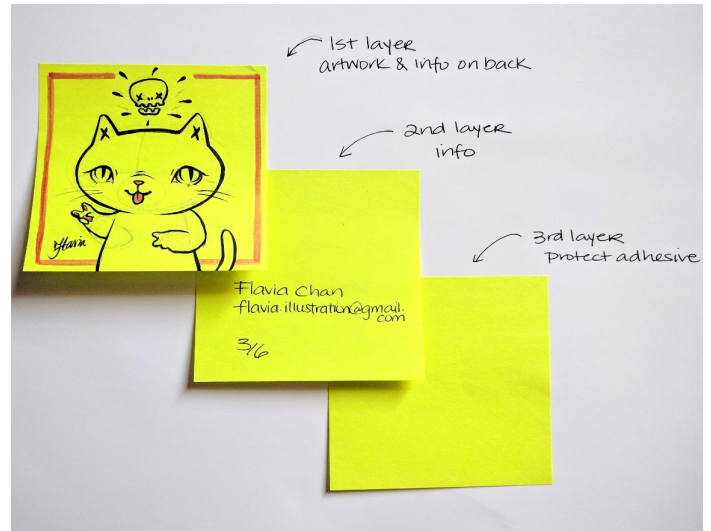 1st layer
artwork & info on back
2nd layer
info
3rd layer
protect adhesive
Flavia
Flavia Chan
flavia.illustration@gmail.
com
3/6